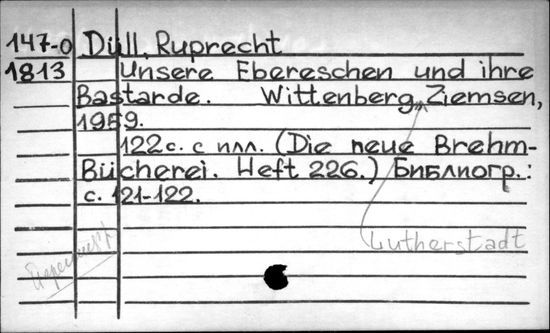 147-0 Düll, Ruprecht
1813 Unsere Ebereschen und ihre
Bastarde. Wittenberg, Ziemsen,
1959.
122 с. с илл. (Die neue Brehm-
Bücherei. Heft 226.) Библиогр.:
с. 121-122.
Lutherstadt